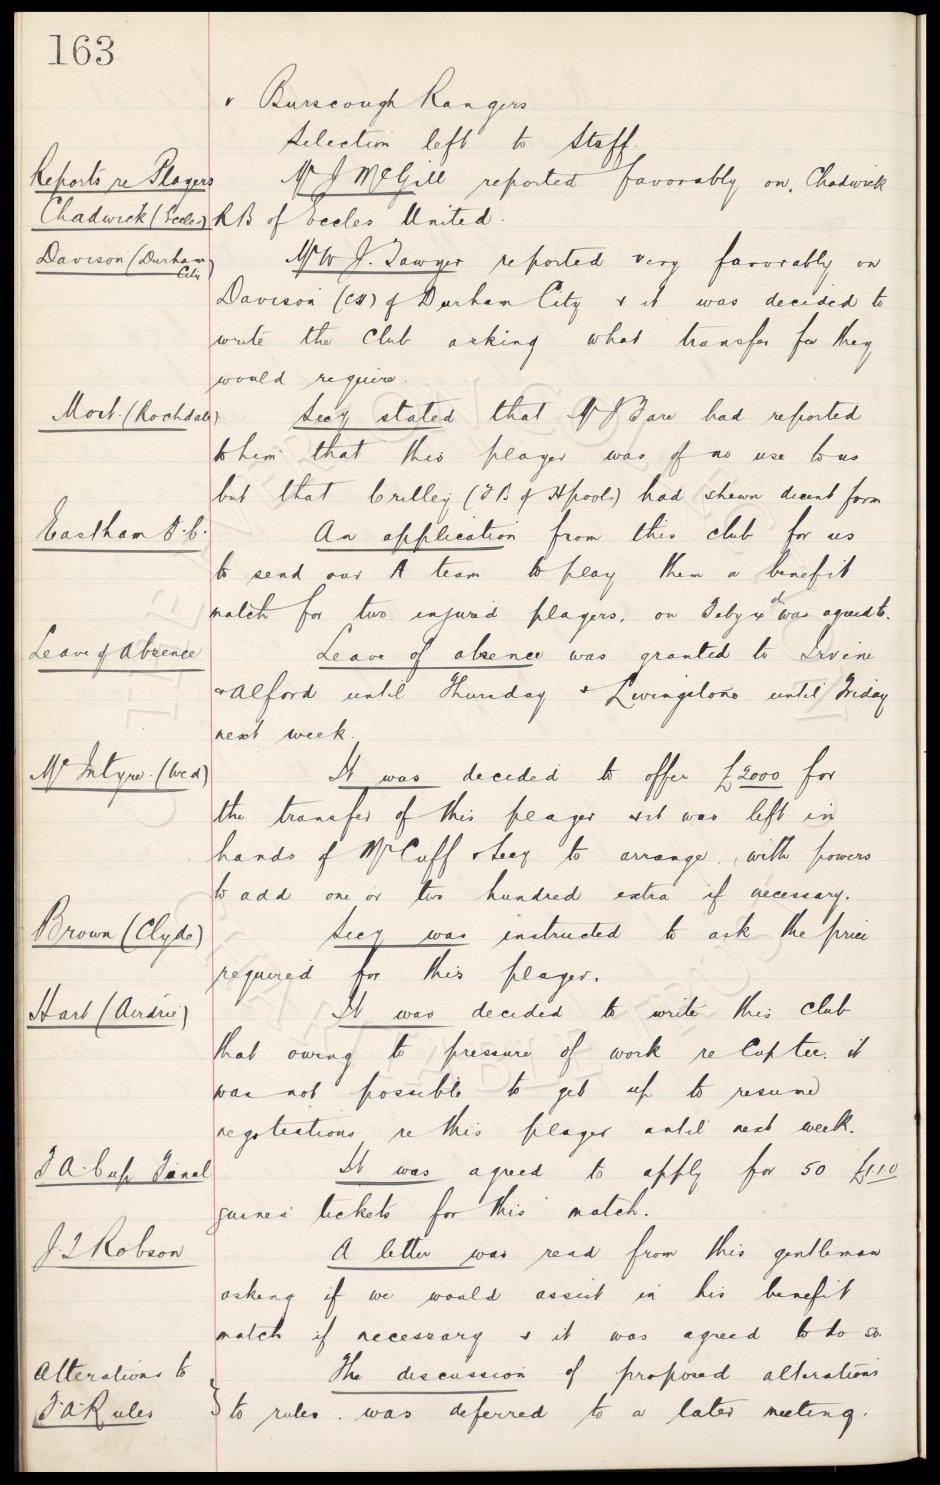 163
v Burscough Rangers
Selection left to Staff.
Reports re Players
Mr J McGill reported favorably on, Chadwick
Chadwick (Eccles) RB of Eccles United.
Davison (Durham City)
Mr W J. Sawyer reported very favorably on
Davison (CH) of Durham City & it was decided to
write the club asking what transfer fee they
would require.
Mort. (Rochdale)
Secy stated that Mr Bare had reported
to him that this player was of no use to us
but that Crilley (FB of Hpools) had shewn decent form
Eastham F.C.
An application from this club for us
to send our A team to play them a benefit
match for two injured players, on Feby 4 was agreed to.
Leave of Absence
Leave of absence was granted to Irvine
& Alford until Thursday & Livingstone until Friday
next week.
McIntyre. (Wed)
It was decided to offer £2000 for
the transfer of this player & it was left in
hands of Mr Cuff & Secy to arrange, with powers
to add one or two hundred extra if necessary.
Brown (Clyde)
Secy was instructed to ask the price
required for this player.
Hart (Airdrie)
It was decided to write this club
that owing to pressure of work re Cup tee. it
was not possible to get up to resume
negotiations re this player until next week.
F A Cup Final
It was agreed to apply for 50 £1.1.0
guinea tickets for this match.
J. T Robson
A letter was read from this gentleman
asking if we would assist in his benefit
match if necessary & it was agreed to do so.
Alterations to
F.A. Rules
The discussion of proposed alterations
to rules. was deferred to a later meeting.
THE EVERTON COLLECTION
CHARITABLE TRUST